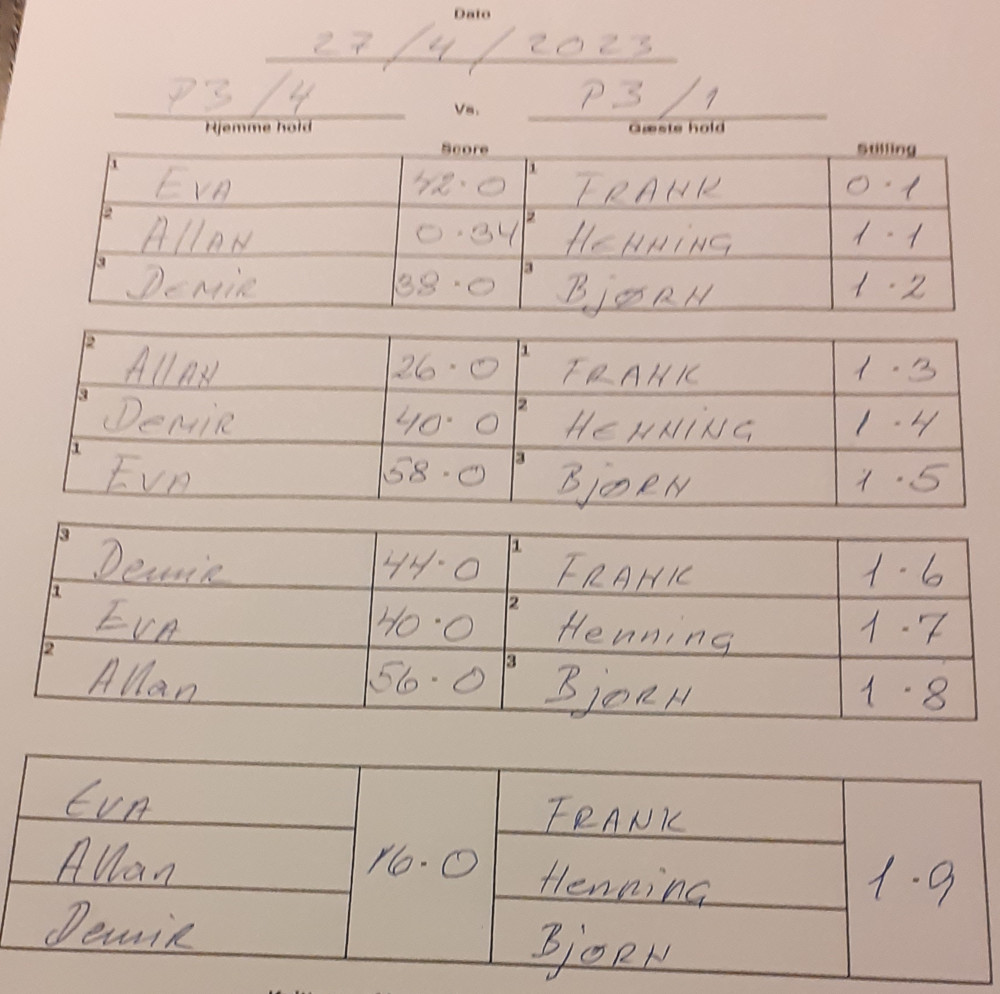 Dato
27/4/2023
P3/4 Vs. P3/1
Hjemme hold Gæste hold
Score Stilling
1 EVA 42·0 1 FRANK 0·1
2 AllAN 0·34 2 HENNiNG 1·1
3 DEMiR 38·0 3 BjØRN 1·2
2 AllAN 26·0 1 FRANK 1·3
3 DEMiR 40·0 2 HENNiNG 1·4
1 EVA 58·0 3 BjØRN 1·5
3 DEmiR 44·0 1 FRANK 1·6
1 EVA 40·0 2 Henning 1·7
2 Allan 56·0 3 BjØRN 1·8
EVA FRANK
Allan 16·0 Henning 1·9
DEmiR BjØRN